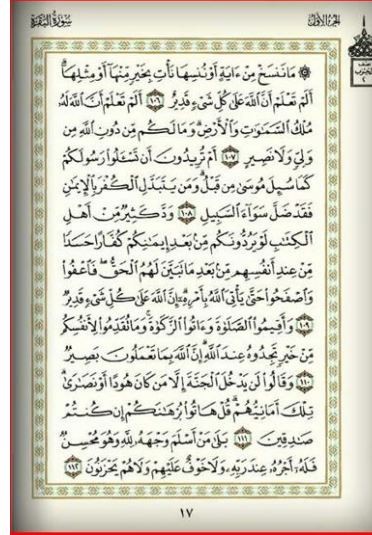 سُورَةُ البَقَرَةِ الجُزْءُ الأَوَّلُ
۞ مَا نَنسَخْ مِنْ ءَايَةٍ أَوْ نُنسِهَا نَأْتِ بِخَيْرٍ مِّنْهَآ أَوْ مِثْلِهَآ ۗ
أَلَمْ تَعْلَمْ أَنَّ ٱللَّهَ عَلَىٰ كُلِّ شَىْءٍ قَدِيرٌ ١٠٦ أَلَمْ تَعْلَمْ أَنَّ ٱللَّهَ لَهُۥ
مُلْكُ ٱلسَّمَٰوَٰتِ وَٱلْأَرْضِ ۗ وَمَا لَكُم مِّن دُونِ ٱللَّهِ مِن
وَلِىٍّ وَلَا نَصِيرٍ ١٠٧ أَمْ تُرِيدُونَ أَن تَسْـَٔلُوا۟ رَسُولَكُمْ
كَمَا سُئِلَ مُوسَىٰ مِن قَبْلُ ۗ وَمَن يَتَبَدَّلِ ٱلْكُفْرَ بِٱلْإِيمَٰنِ
فَقَدْ ضَلَّ سَوَآءَ ٱلسَّبِيلِ ١٠٨ وَدَّ كَثِيرٌ مِّنْ أَهْلِ
ٱلْكِتَٰبِ لَوْ يَرُدُّونَكُم مِّنۢ بَعْدِ إِيمَٰنِكُمْ كُفَّارًا حَسَدًا
مِّنْ عِندِ أَنفُسِهِم مِّنۢ بَعْدِ مَا تَبَيَّنَ لَهُمُ ٱلْحَقُّ ۖ فَٱعْفُوا۟
وَٱصْفَحُوا۟ حَتَّىٰ يَأْتِىَ ٱللَّهُ بِأَمْرِهِۦٓ ۗ إِنَّ ٱللَّهَ عَلَىٰ كُلِّ شَىْءٍ قَدِيرٌ
١٠٩ وَأَقِيمُوا۟ ٱلصَّلَوٰةَ وَءَاتُوا۟ ٱلزَّكَوٰةَ ۚ وَمَا تُقَدِّمُوا۟ لِأَنفُسِكُم
مِّنْ خَيْرٍ تَجِدُوهُ عِندَ ٱللَّهِ ۗ إِنَّ ٱللَّهَ بِمَا تَعْمَلُونَ بَصِيرٌ
١١٠ وَقَالُوا۟ لَن يَدْخُلَ ٱلْجَنَّةَ إِلَّا مَن كَانَ هُودًا أَوْ نَصَٰرَىٰ ۗ
تِلْكَ أَمَانِيُّهُمْ ۗ قُلْ هَاتُوا۟ بُرْهَٰنَكُمْ إِن كُنتُمْ
صَٰدِقِينَ ١١١ بَلَىٰ مَنْ أَسْلَمَ وَجْهَهُۥ لِلَّهِ وَهُوَ مُحْسِنٌ
فَلَهُۥٓ أَجْرُهُۥ عِندَ رَبِّهِۦ وَلَا خَوْفٌ عَلَيْهِمْ وَلَا هُمْ يَحْزَنُونَ ١١٢
١٧